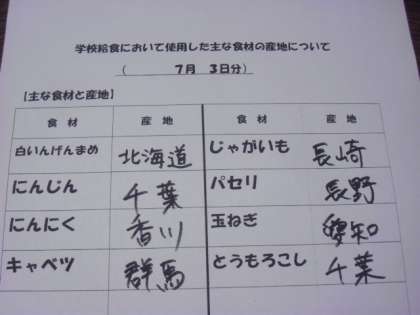 学校給食において使用した主な食材の産地について
( 7月 3日分)
【主な食材と産地】
食材 産地 食材 産地
白いんげんまめ 北海道 じゃがいも 長崎
にんじん 千葉 パセリ 長野
にんにく 香川 玉ねぎ 愛知
キャベツ 群馬 とうもろこし 千葉